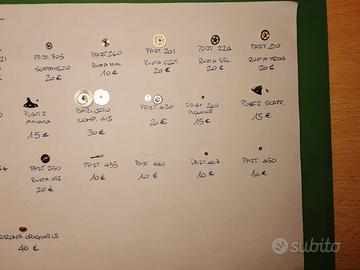 PART. 705 PART 260 PART. 201 PART. 224 PART. 210
SCAPPAMENTO RUOTA MIN. RUOTA CENT. RUOTA SEC. RUOTA MEDIA
20 € 10 € 20 € 20 € 20 €
PONTE BARILETTO PART 420 PART. PONTE SCAPP.
ANCORA COMP. 20 € PIGNONE 15 €
15 € 30 € 15 €
PART. 250 PART 435 PART. 440 PART 407 PART. 450
RUOTA ORE 10 € 10 € 10 € 10 €
20 €
CORONA ORIGINALE
40 €
subito